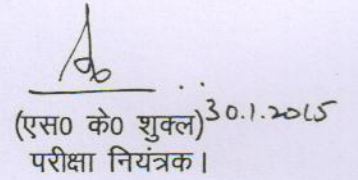 (एस0 के0 शुक्ल) 30.1.2015
परीक्षा नियंत्रक।